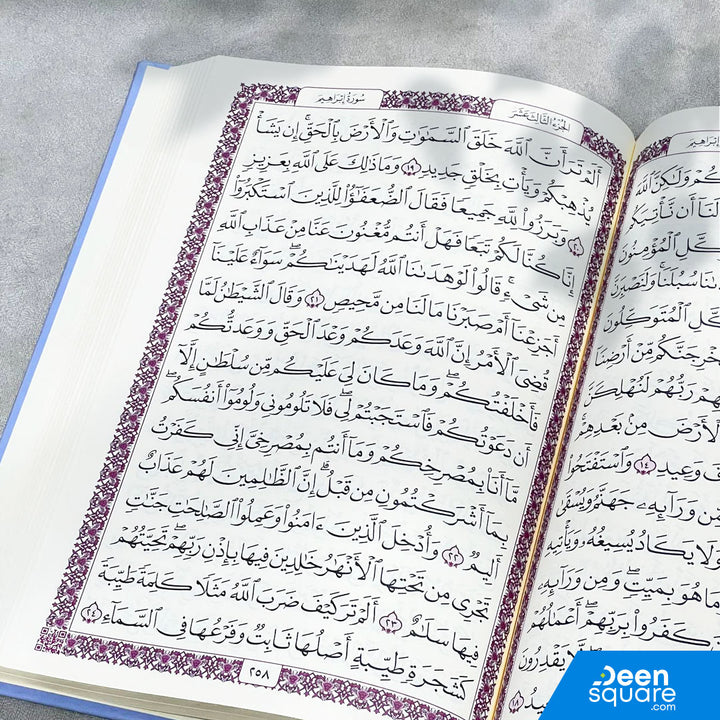 سُورَةُ إِبْرَاهِيمَ
الجُزْءُ الثَّالِثَ عَشَرَ
أَلَمْ تَرَ أَنَّ ٱللَّهَ خَلَقَ ٱلسَّمَٰوَٰتِ وَٱلْأَرْضَ بِٱلْحَقِّۚ إِن يَشَأْ
يُذْهِبْكُمْ وَيَأْتِ بِخَلْقٍ جَدِيدٍ ١٩ وَمَا ذَٰلِكَ عَلَى ٱللَّهِ بِعَزِيزٍ
٢٠ وَبَرَزُوا۟ لِلَّهِ جَمِيعًا فَقَالَ ٱلضُّعَفَٰٓؤُا۟ لِلَّذِينَ ٱسْتَكْبَرُوٓا۟
إِنَّا كُنَّا لَكُمْ تَبَعًا فَهَلْ أَنتُم مُّغْنُونَ عَنَّا مِنْ عَذَابِ ٱللَّهِ
مِن شَىْءٍۚ قَالُوا۟ لَوْ هَدَىٰنَا ٱللَّهُ لَهَدَيْنَٰكُمْۖ سَوَآءٌ عَلَيْنَآ
أَجَزِعْنَآ أَمْ صَبَرْنَا مَا لَنَا مِن مَّحِيصٍ ٢١ وَقَالَ ٱلشَّيْطَٰنُ لَمَّا
قُضِىَ ٱلْأَمْرُ إِنَّ ٱللَّهَ وَعَدَكُمْ وَعْدَ ٱلْحَقِّ وَوَعَدتُّكُمْ
فَأَخْلَفْتُكُمْۖ وَمَا كَانَ لِىَ عَلَيْكُم مِّن سُلْطَٰنٍ إِلَّآ
أَن دَعَوْتُكُمْ فَٱسْتَجَبْتُمْ لِىۖ فَلَا تَلُومُونِى وَلُومُوٓا۟ أَنفُسَكُمۖ
مَّآ أَنَا۠ بِمُصْرِخِكُمْ وَمَآ أَنتُم بِمُصْرِخِىَّۖ إِنِّى كَفَرْتُ
بِمَآ أَشْرَكْتُمُونِ مِن قَبْلُۗ إِنَّ ٱلظَّٰلِمِينَ لَهُمْ عَذَابٌ
أَلِيمٌ ٢٢ وَأُدْخِلَ ٱلَّذِينَ ءَامَنُوا۟ وَعَمِلُوا۟ ٱلصَّٰلِحَٰتِ جَنَّٰتٍ
تَجْرِى مِن تَحْتِهَا ٱلْأَنْهَٰرُ خَٰلِدِينَ فِيهَا بِإِذْنِ رَبِّهِمْۖ تَحِيَّتُهُمْ
فِيهَا سَلَٰمٌ ٢٣ أَلَمْ تَرَ كَيْفَ ضَرَبَ ٱللَّهُ مَثَلًا كَلِمَةً طَيِّبَةً
كَشَجَرَةٍ طَيِّبَةٍ أَصْلُهَا ثَابِتٌ وَفَرْعُهَا فِى ٱلسَّمَآءِ ٢٤
٢٥٨
وَلَٰكِنَّ ٱللَّهَ
لَنَآ أَن نَّأْتِيَكُم
ٱلْمُؤْمِنُونَ
سُبُلَنَاۚ وَلَنَصْبِرَنَّ
ٱلْمُتَوَكِّلُونَ
مِّنْ أَرْضِنَآ
رَبُّهُمْ لَنُهْلِكَنَّ
ٱلْأَرْضَ مِنۢ بَعْدِهِمْۚ
وَعِيدِ ١٤ وَٱسْتَفْتَحُوا۟
مِّن وَرَآئِهِۦ جَهَنَّمُ وَيُسْقَىٰ
وَلَا يَكَادُ يُسِيغُهُۥ وَيَأْتِيهِ
مَا هُوَ بِمَيِّتٍۖ وَمِن وَرَآئِهِۦ
كَفَرُوا۟ بِرَبِّهِمْۖ أَعْمَٰلُهُمْ
لَّا يَقْدِرُونَ
١٨
Deen
square
.com